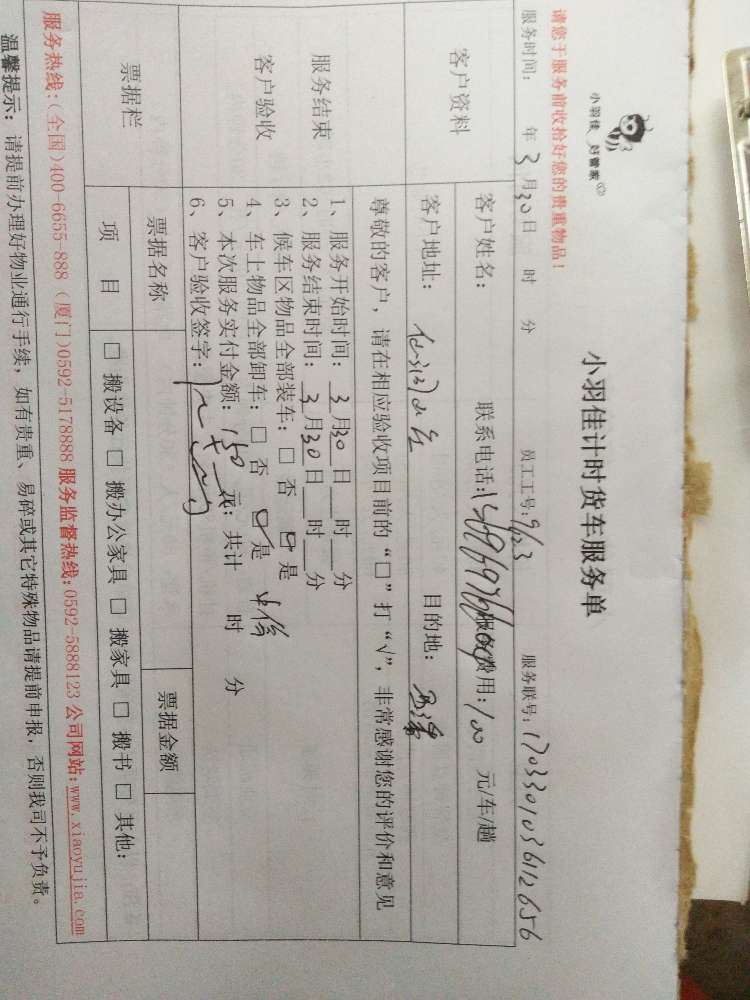 小羽佳 好管家
小羽佳计时货车服务单
请您于服务前收拾好您的贵重物品！
服务时间： 年 3 月 30 日 时 分 员工工号：9123 服务联号：1703301036112656
客户资料
客户姓名： 联系电话： 服务费用：100 元/车/趟
客户地址： 目的地：
尊敬的客户，请在相应验收项目前的“□”打“√”，非常感谢您的评价和意见
服务结束
客户验收
1、服务开始时间：3月30日 时 分
2、服务结束时间：3月30日 时 分
3、候车区物品全部装车：□ 否 ☑ 是
4、车上物品全部卸车：□ 否 ☑ 是
5、本次服务实付金额：150 元；共计 时 分
6、客户验收签字：
票据栏
票据名称 票据金额
项 目 □ 搬设备 □ 搬办公家具 □ 搬家具 □ 搬书 □ 其他：
服务热线：(全国)400-6655-888 (厦门)0592-5178888 服务监督热线：0592-5888123 公司网站：www.xiaoyujia.com
温馨提示：请提前办理好物业通行手续，如有贵重、易碎或其它特殊物品请提前申报，否则我司不予负责。